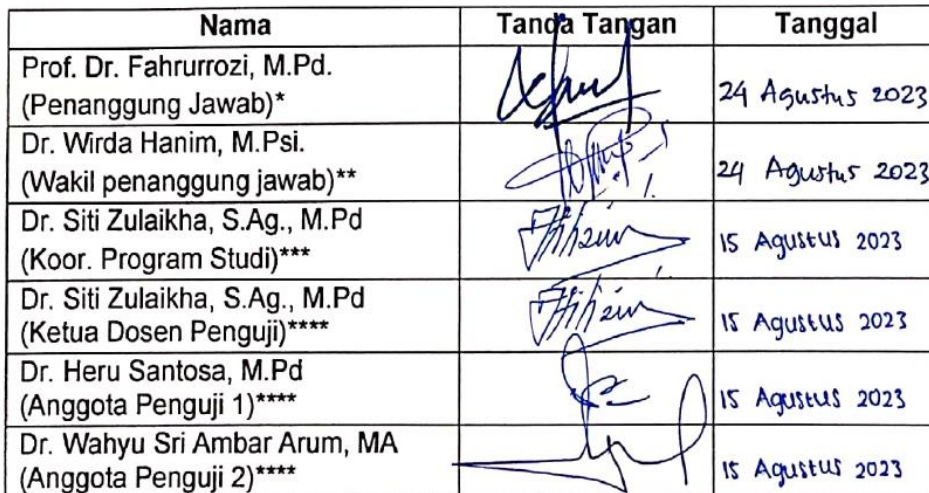 Nama Tanda Tangan Tanggal
Prof. Dr. Fahrurrozi, M.Pd.
(Penanggung Jawab)* 24 Agustus 2023
Dr. Wirda Hanim, M.Psi.
(Wakil penanggung jawab)** 24 Agustus 2023
Dr. Siti Zulaikha, S.Ag., M.Pd
(Koor. Program Studi)*** 15 Agustus 2023
Dr. Siti Zulaikha, S.Ag., M.Pd
(Ketua Dosen Penguji)**** 15 Agustus 2023
Dr. Heru Santosa, M.Pd
(Anggota Penguji 1)**** 15 Agustus 2023
Dr. Wahyu Sri Ambar Arum, MA
(Anggota Penguji 2)**** 15 Agustus 2023